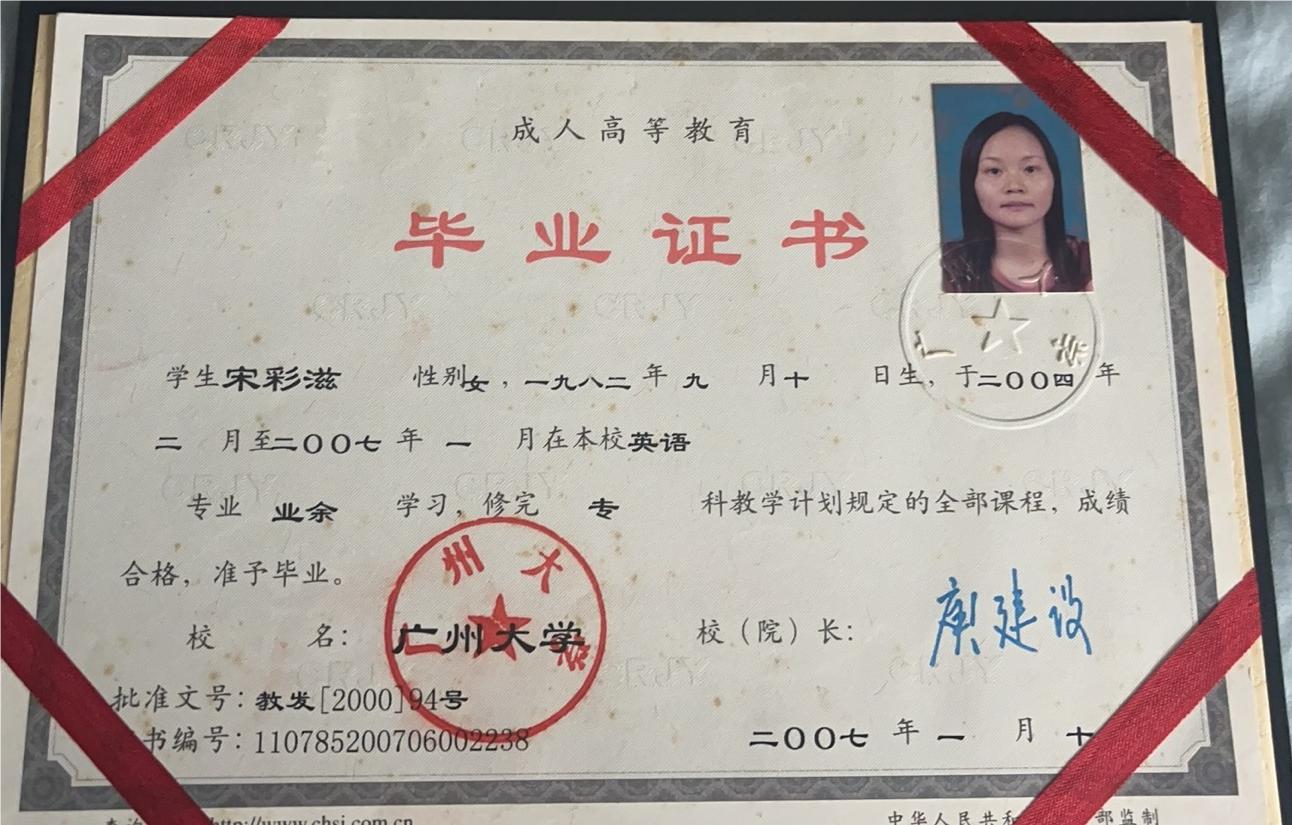 成人高等教育
毕业证书
学生宋彩滋 性别女，一九八二年九月十日生，于二〇〇四年
二月至二〇〇七年一月在本校英语
专业 业余 学习，修完 专 科教学计划规定的全部课程，成绩
合格，准予毕业。
校 名：广州大学 校（院）长：庾建设
州大学
批准文号：教发[2000]94号
书编号：110785200706002238 二〇〇七年一月十
http://www.chsi.com.cn 中华人民共和 部监制